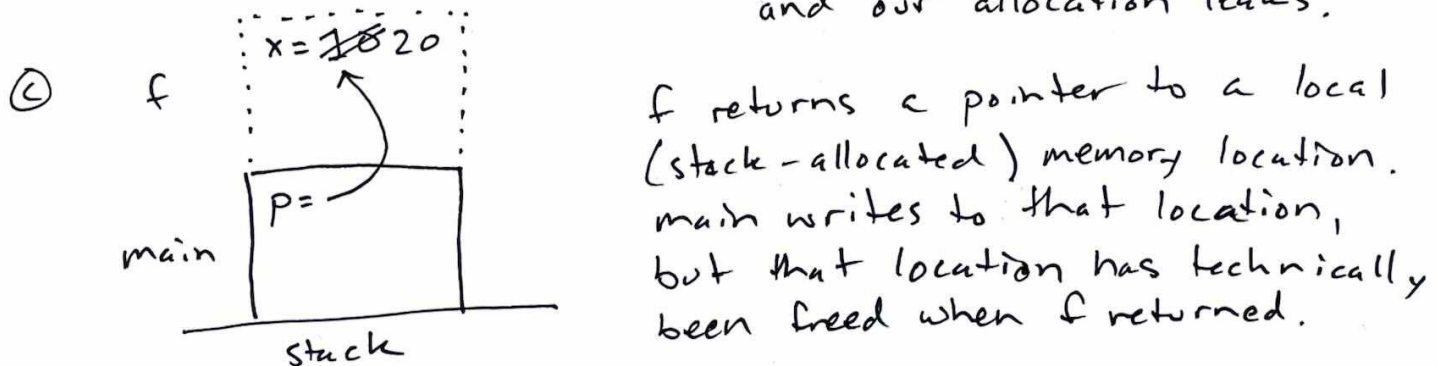 and our allocation leaks.
x = 10 20
ⓒ f
f returns a pointer to a local
(stack-allocated) memory location.
p =
main writes to that location,
main
but that location has technically
been freed when f returned.
stack